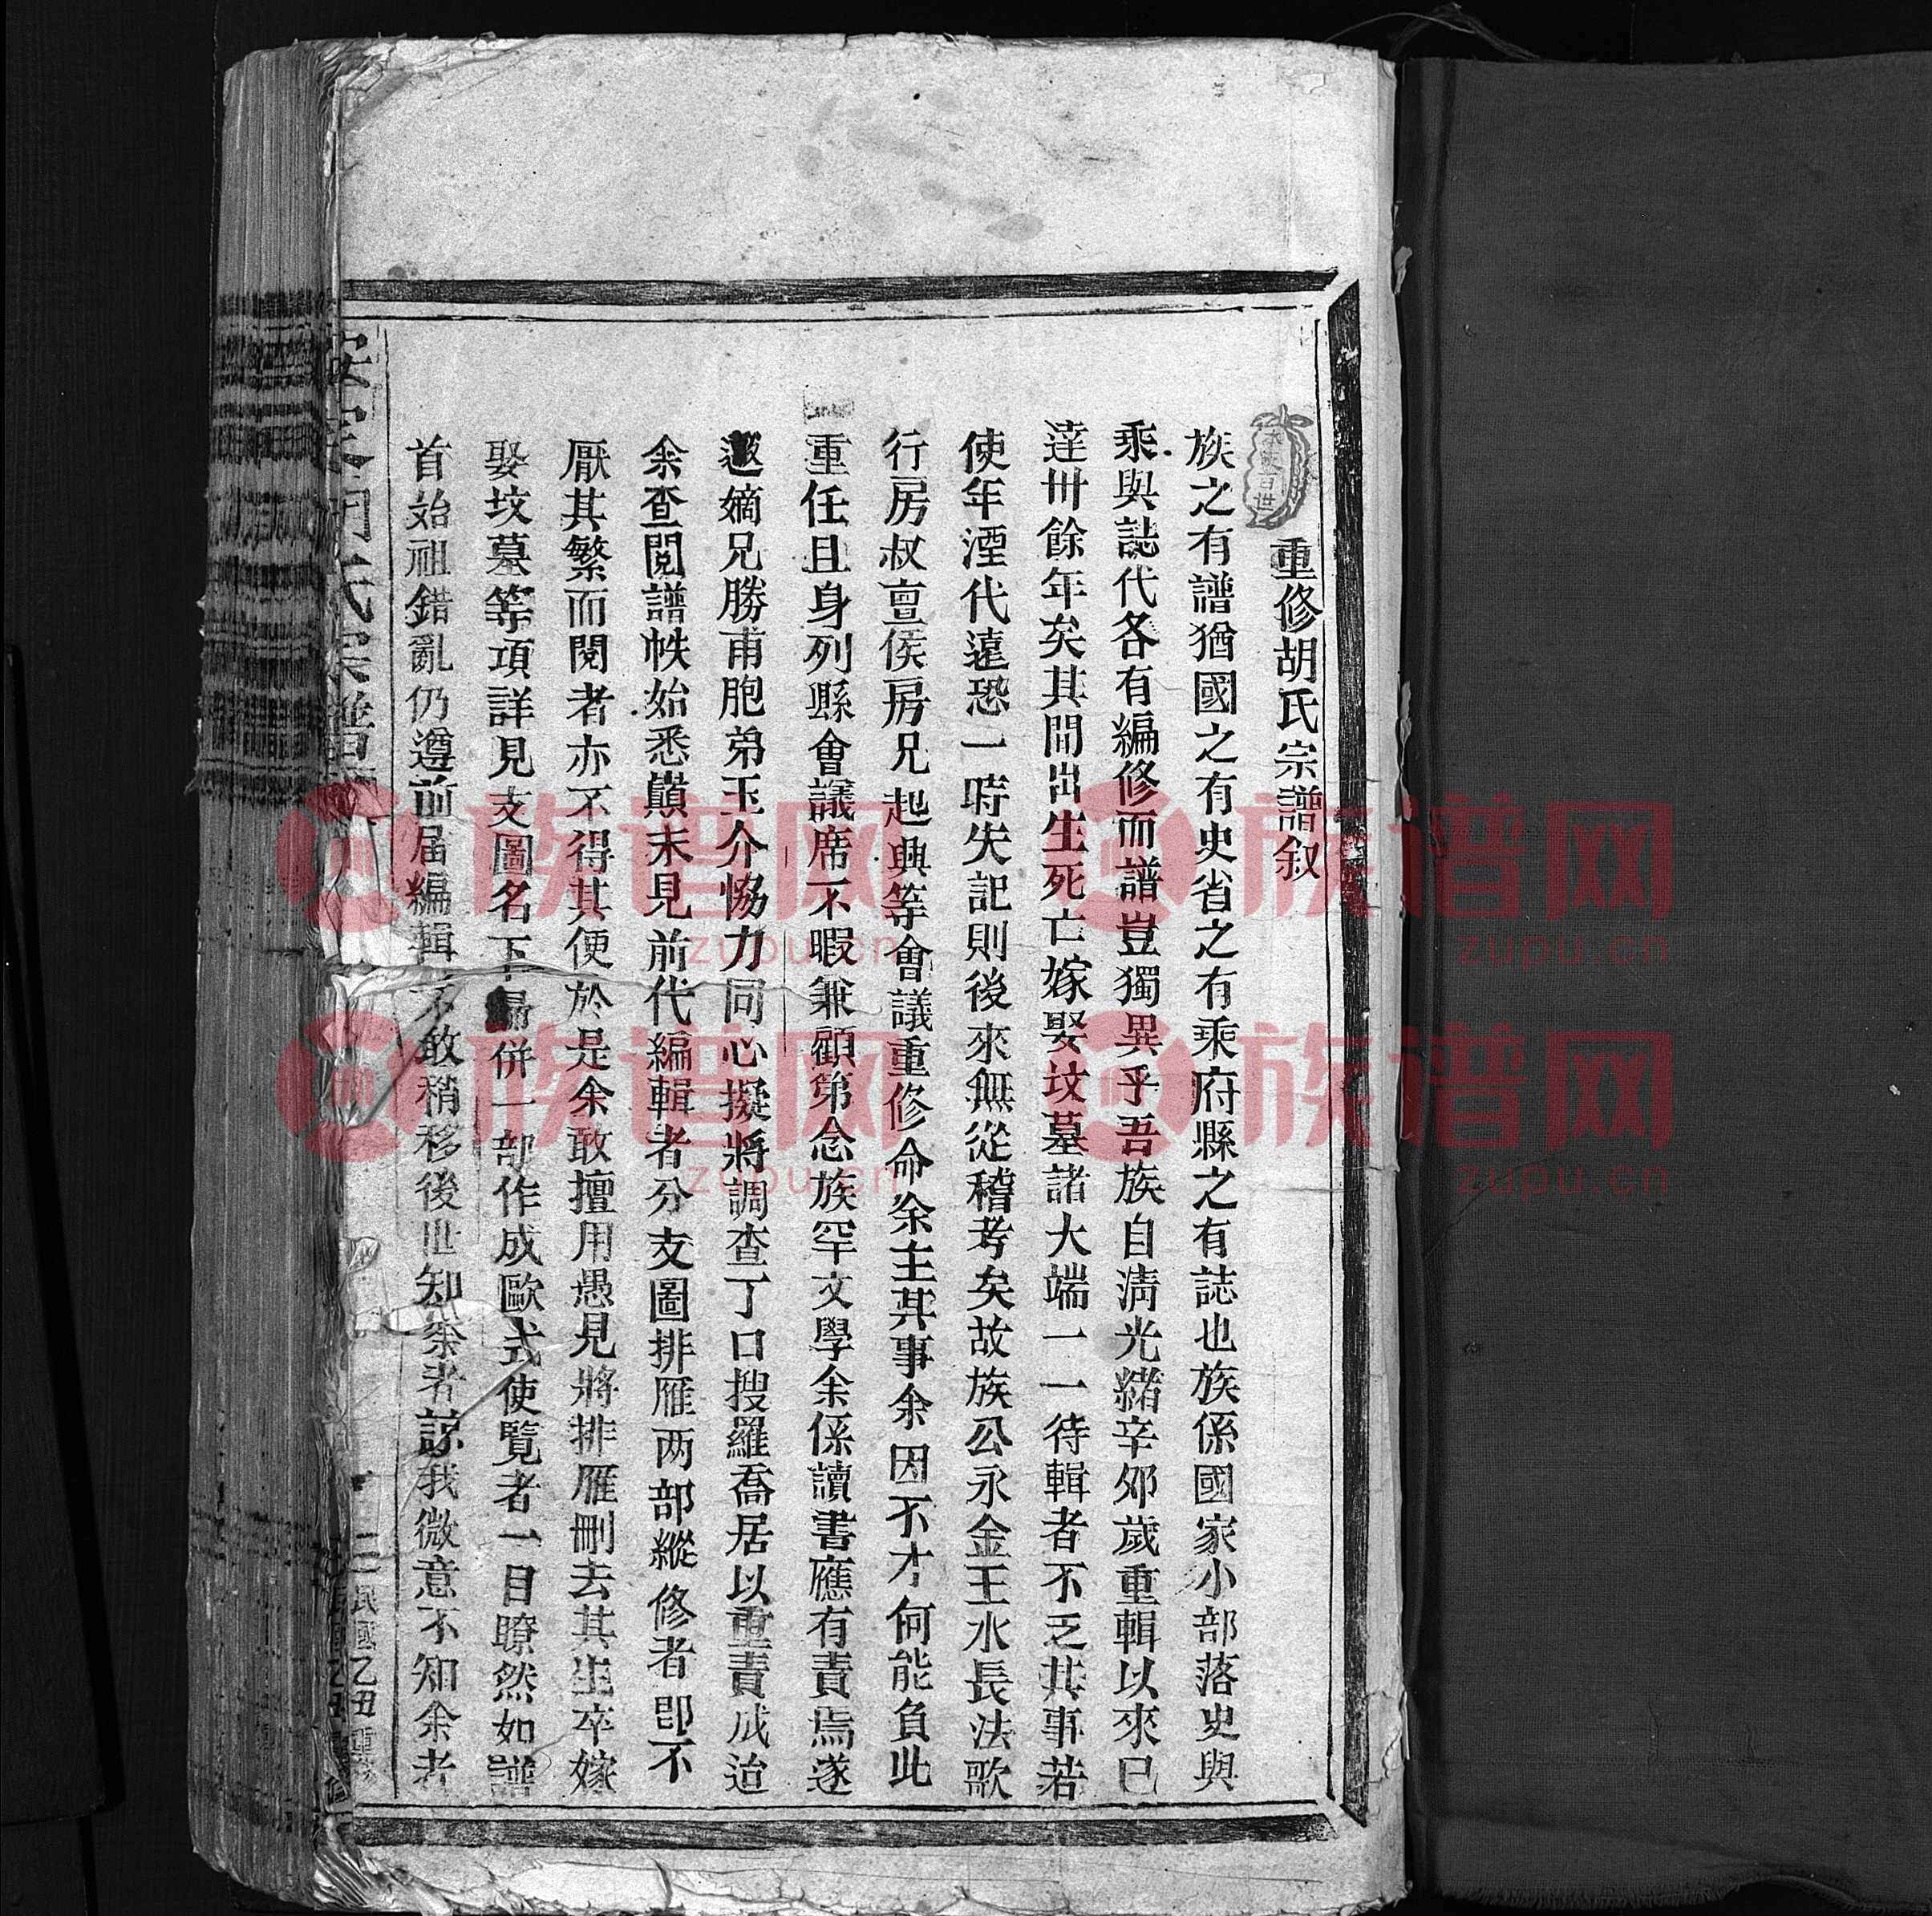 重修胡氏宗譜叙
族之有譜猶國之有史省之有乘府縣之有誌也族係國家小部落史與
乘與誌代各有編修而譜豈獨異乎吾族自淸光緒辛夘歲重輯以來已
達卅餘年矣其間出生死亡嫁娶坟墓諸大端一一待輯者不乏其事若
使年湮代遠恐一時失記則後來無從稽考矣故族公永金王水長法歌
行房叔亶侯房兄起興等會議重修命余主其事余因不才何能負此
重任且身列縣會議席不暇兼顧第念族罕文學余係讀書應有責焉遂
邀嫡兄勝甫胞弟玉介恊力同心擬將調查丁口搜羅喬居以重責成迨
余查閱譜帙始悉巔末見前代編輯者分支圖排雁两部縱修者卽不
厭其繁而閱者亦不得其便於是余敢擅用愚見將排雁刪去其生卒嫁
娶坟墓等項詳見支圖名下歸併一部作成歐式使覽者一目瞭然如譜
首始祖錯亂仍遵前届編輯不敢稍移後世知余者諒我微意不知余者
胡氏宗譜
民國乙丑重修
族谱网
zupu.cn
族谱网
zupu.cn
族谱网
zupu.cn
族谱网
zupu.cn